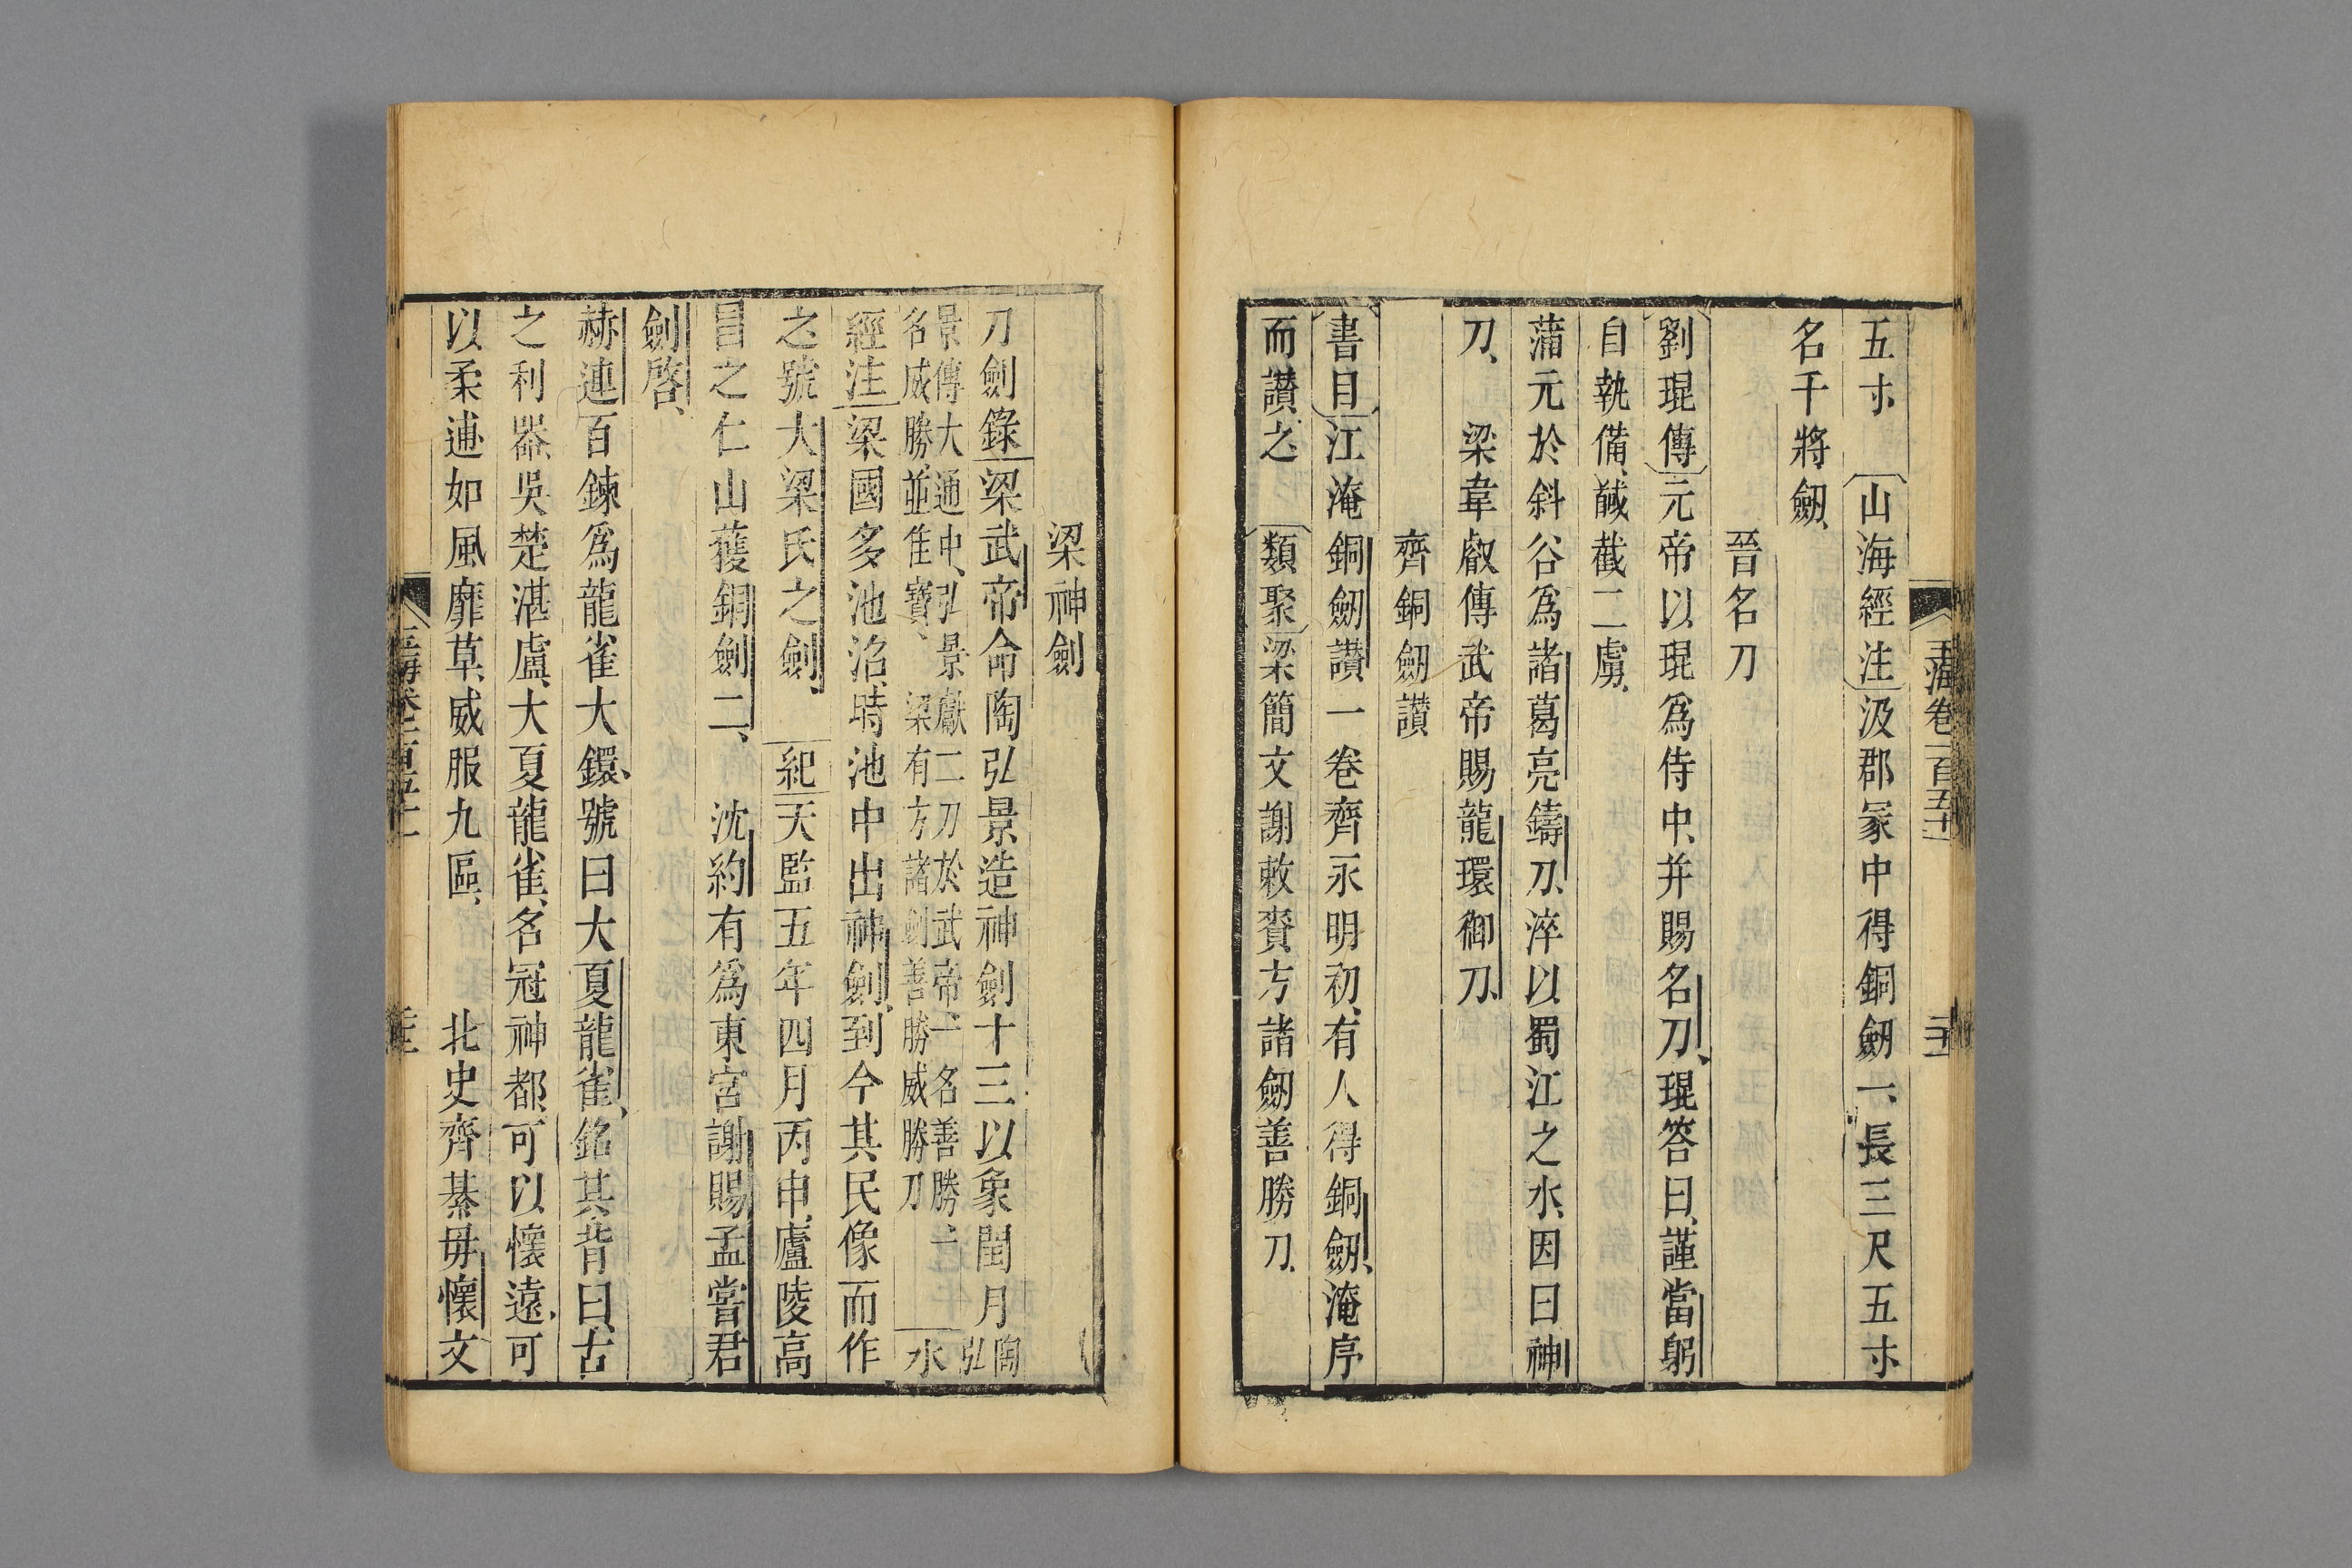 玉海卷一百五十一
五寸 山海經注汲郡冢中得銅劒一長三尺五寸
名干將劒
晉名刀
劉琨傳元帝以琨爲侍中并賜名刀琨答曰謹當躬
自執備馘截二虜
蒲元於斜谷爲諸葛亮鑄刀淬以蜀江之水因曰神
刀 梁韋叡傳武帝賜龍環御刀
齊銅劒讃
書目江淹銅劒讃一卷齊永明初有人得銅劒淹序
而讃之 類聚梁簡文謝敕賚方諸劒善勝刀
梁神劍
刀劍錄梁武帝命陶弘景造神劍十三以象閏月陶弘
景傳大通中弘景獻二刀於武帝一名善勝二
名威勝並佳寶 梁有方諸劍善勝威勝刀 水
經注梁國多池沼時池中出神劍到今其民像而作
之號大梁氏之劍 紀天監五年四月丙申盧陵高
昌之仁山獲銅劍二 沈約有爲東宮謝賜孟嘗君
劍啓
赫連百鍊爲龍雀大鐶號曰大夏龍雀銘其背曰古
之利器吳楚湛盧大夏龍雀名冠神都可以懷遠可
以柔逋如風靡草威服九區 北史齊綦毋懷文